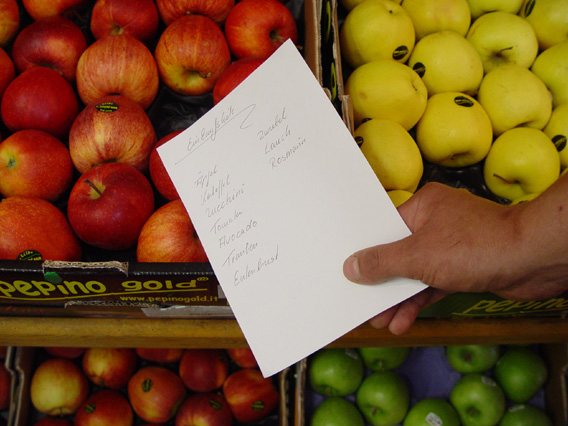 Einkaufsliste
Äpfel
Kartoffel
Zucchini
Tomaten
Avocado
Trauben
Entenbrust
Zwiebel
Lauch
Rosmarin
pepino gold®
www.pepinogold.it